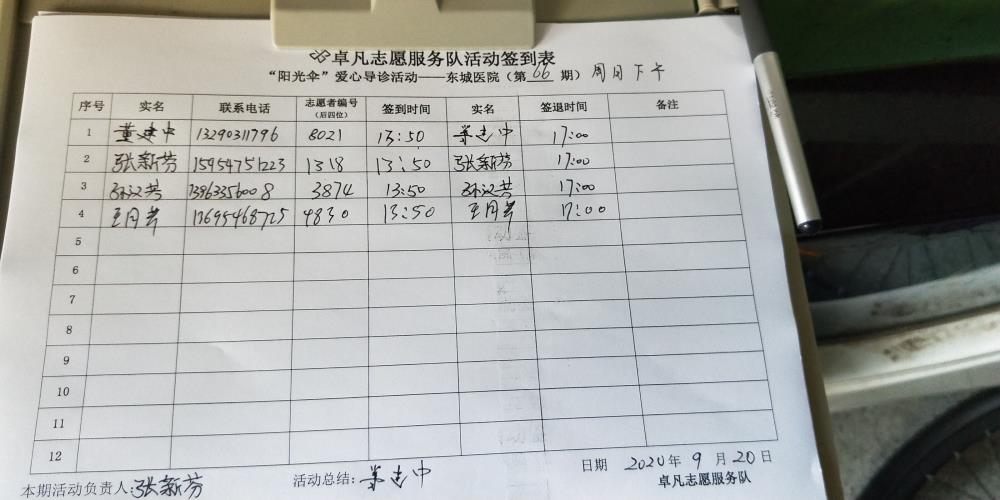 卓凡志愿服务队活动签到表
“阳光伞”爱心导诊活动——东城医院（第 66 期）周日下午
序号 实名 联系电话 志愿者编号（后四位） 签到时间 实名 签退时间 备注
1 董建中 13290311796 8021 13:50 董建中 17:00
2 张新芬 15954751223 1318 13:50 张新芬 17:00
3 孙汉芸 13963356008 3874 13:50 孙汉芸 17:00
4 王月 13695468725 4830 13:50 王月 17:00
5
6
7
8
9
10
11
12
本期活动负责人:张新芬 活动总结: 董建中 日期 2020年 9 月 20 日
卓凡志愿服务队